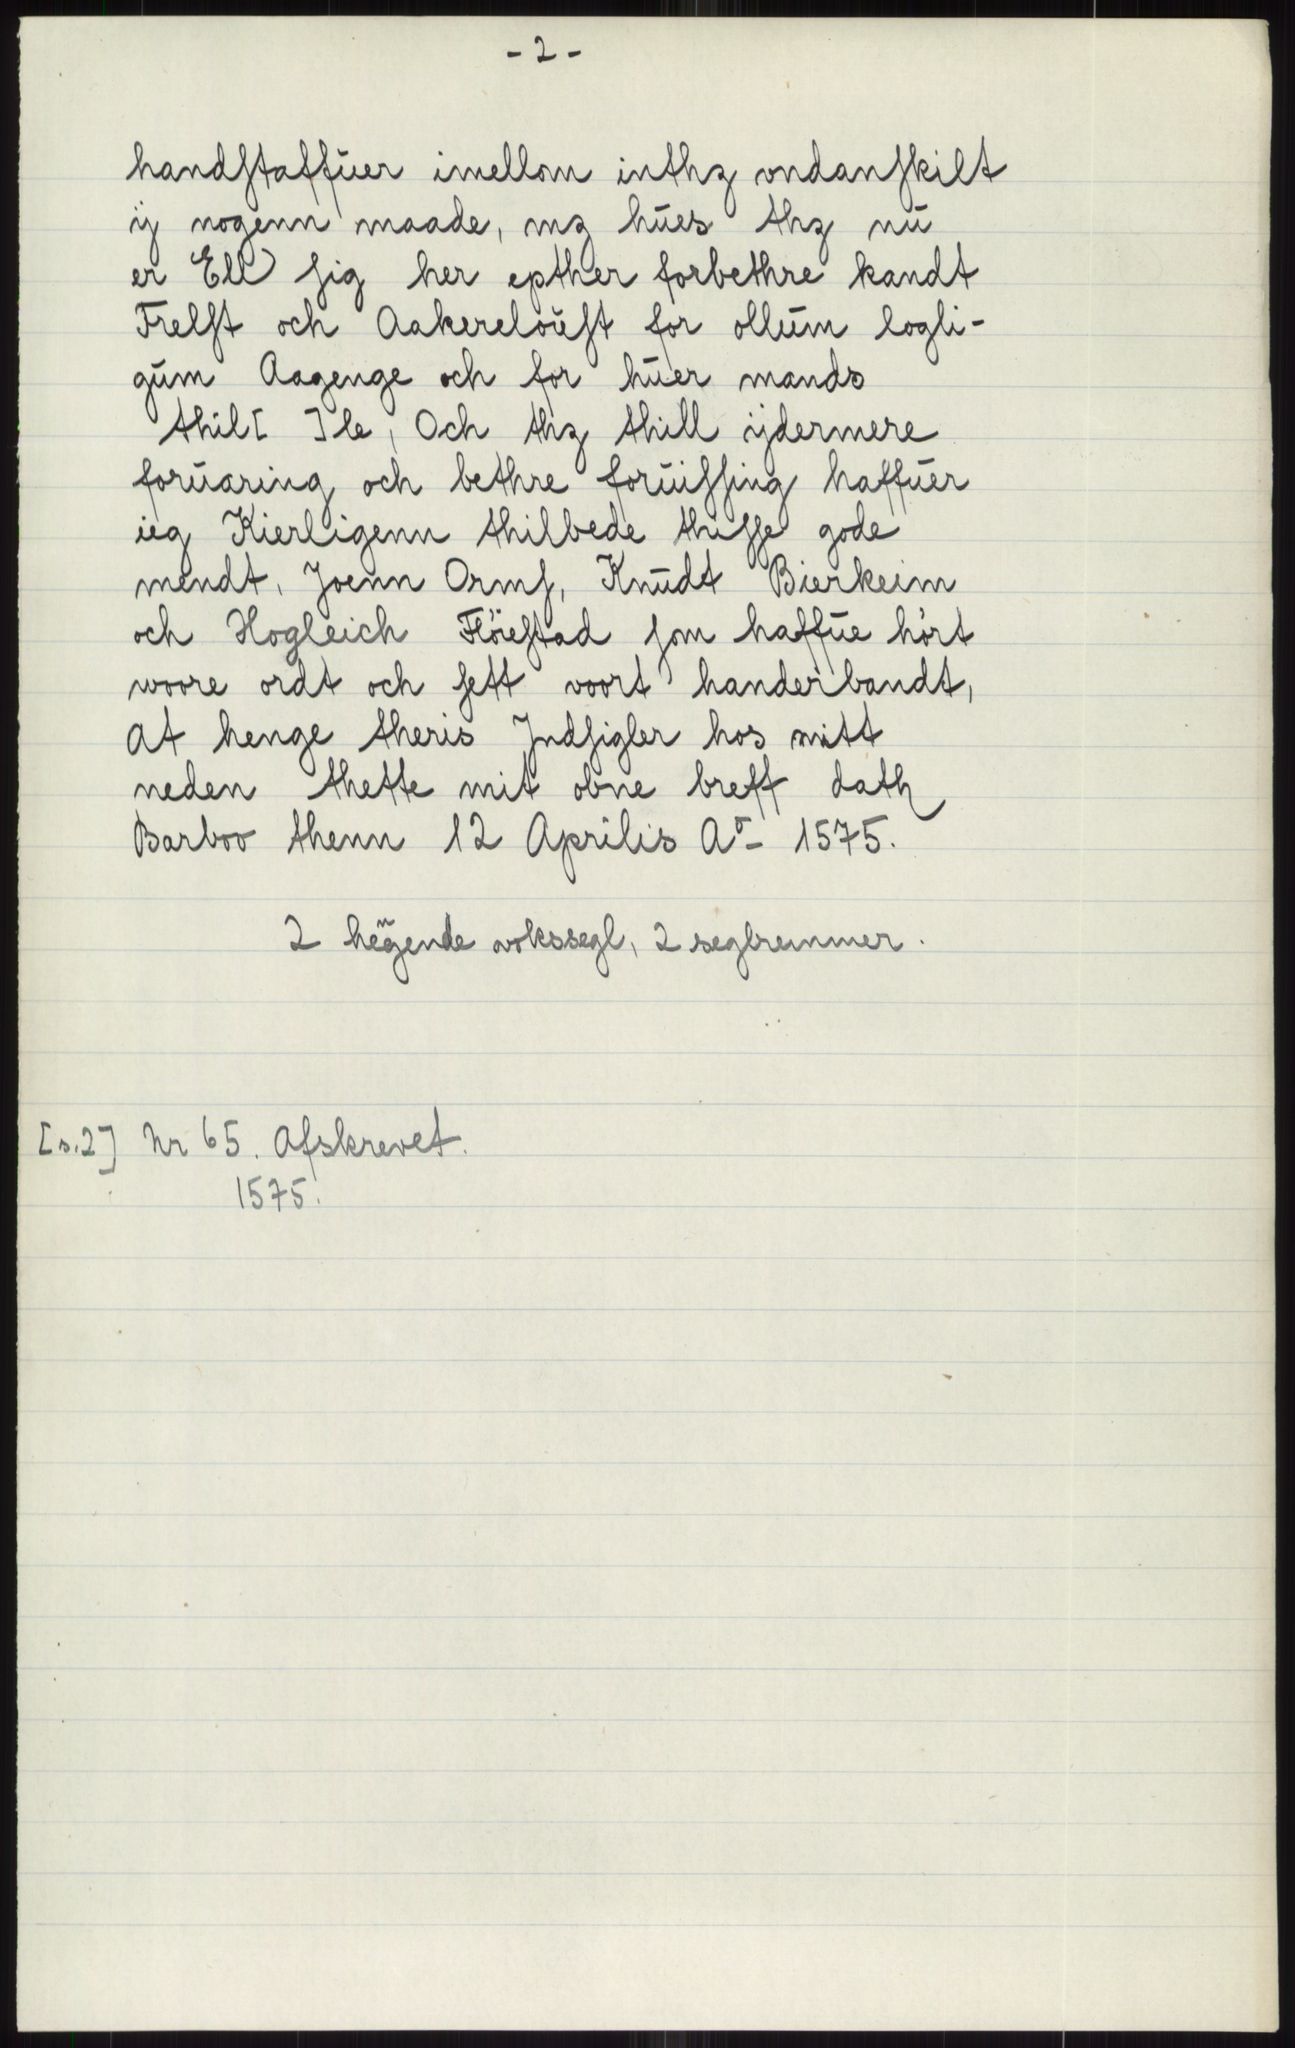 - 2 -
handſtaffŭer imellom inthꝫ vndanſkilt
ÿ nogenn maade, mꝫ hŭes thꝫ nŭ
er Ell ſig her epther forbethre kandt
Frelſt och Aakereloŭſt for ollŭm logli-
gŭm Aagenge och for hŭer mands
thil[ ]le, Och thꝫ thill ÿdermere
forŭaring och bethre forŭiſſing haffŭer
ieg Kierligenn thilbede thiſſe gode
mendt, Joenn Ormſ, Knŭdt Bierkeim
och Hogleich Flöeſtad ſom haffŭe hört
woore ordt och ſett voort handerbandt,
At henge theris Jndſigler hos mitt
neden thette mit obne breff dath
Barboo thenn 12 Aprilis Aº 1575.
2 hēgende vokssegl, 2 seglremmer.
[s.2] Nr 65. Afskrevet.
1575.